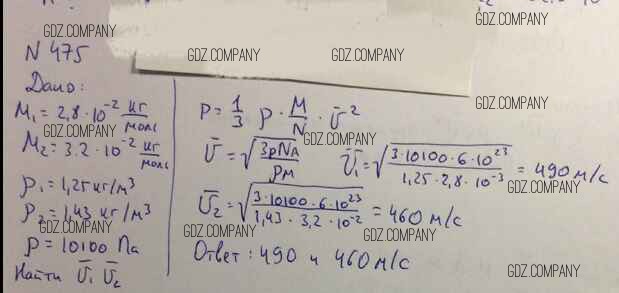 GDZ.COMPANY
N 475
GDZ.COMPANY GDZ.COMPANY
Дано:
M₁ = 2,8 · 10⁻² кг/моль
GDZ.COMPANY
M₂ = 3.2 · 10⁻² кг/моль
ρ₁ = 1,25 кг/м³
ρ₂ = 1,43 кг/м³
GDZ.COMPANY
p = 10100 Па
Найти Ū₁ Ū₂
P = 1/3 ρ · M/N · Ū²
GDZ.COMPANY
GDZ.COMPANY
Ū = √(3pNA/ρM) Ū₁ = √(3·10100·6·10²³/1,25·2,8·10⁻³) = 490 м/с
GDZ.COMPANY
GDZ.COMPANY
Ū₂ = √(3·10100·6·10²³/1,43·3,2·10⁻²) = 460 м/с
GDZ.COMPANY
Ответ: 490 и 460 м/с
GDZ.COMPANY